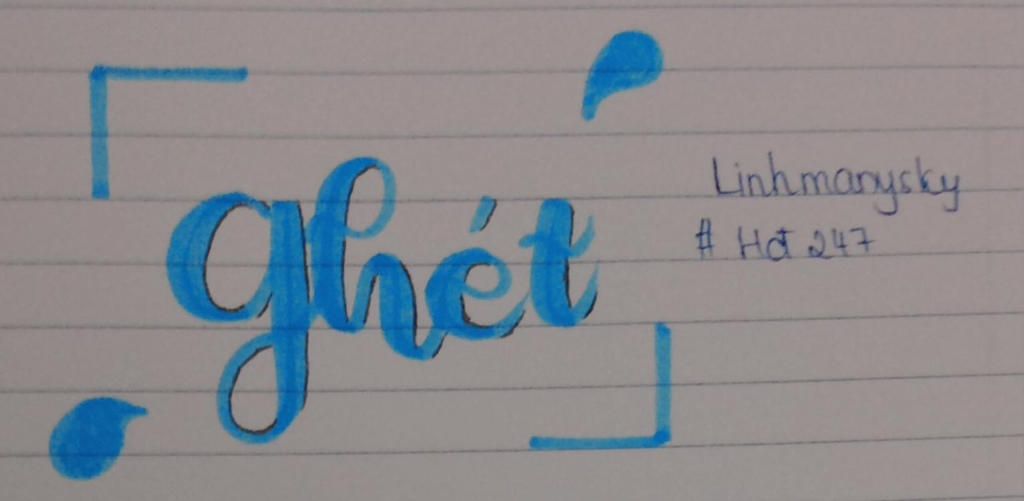 ghét
Linhmanysky
# Hot 247